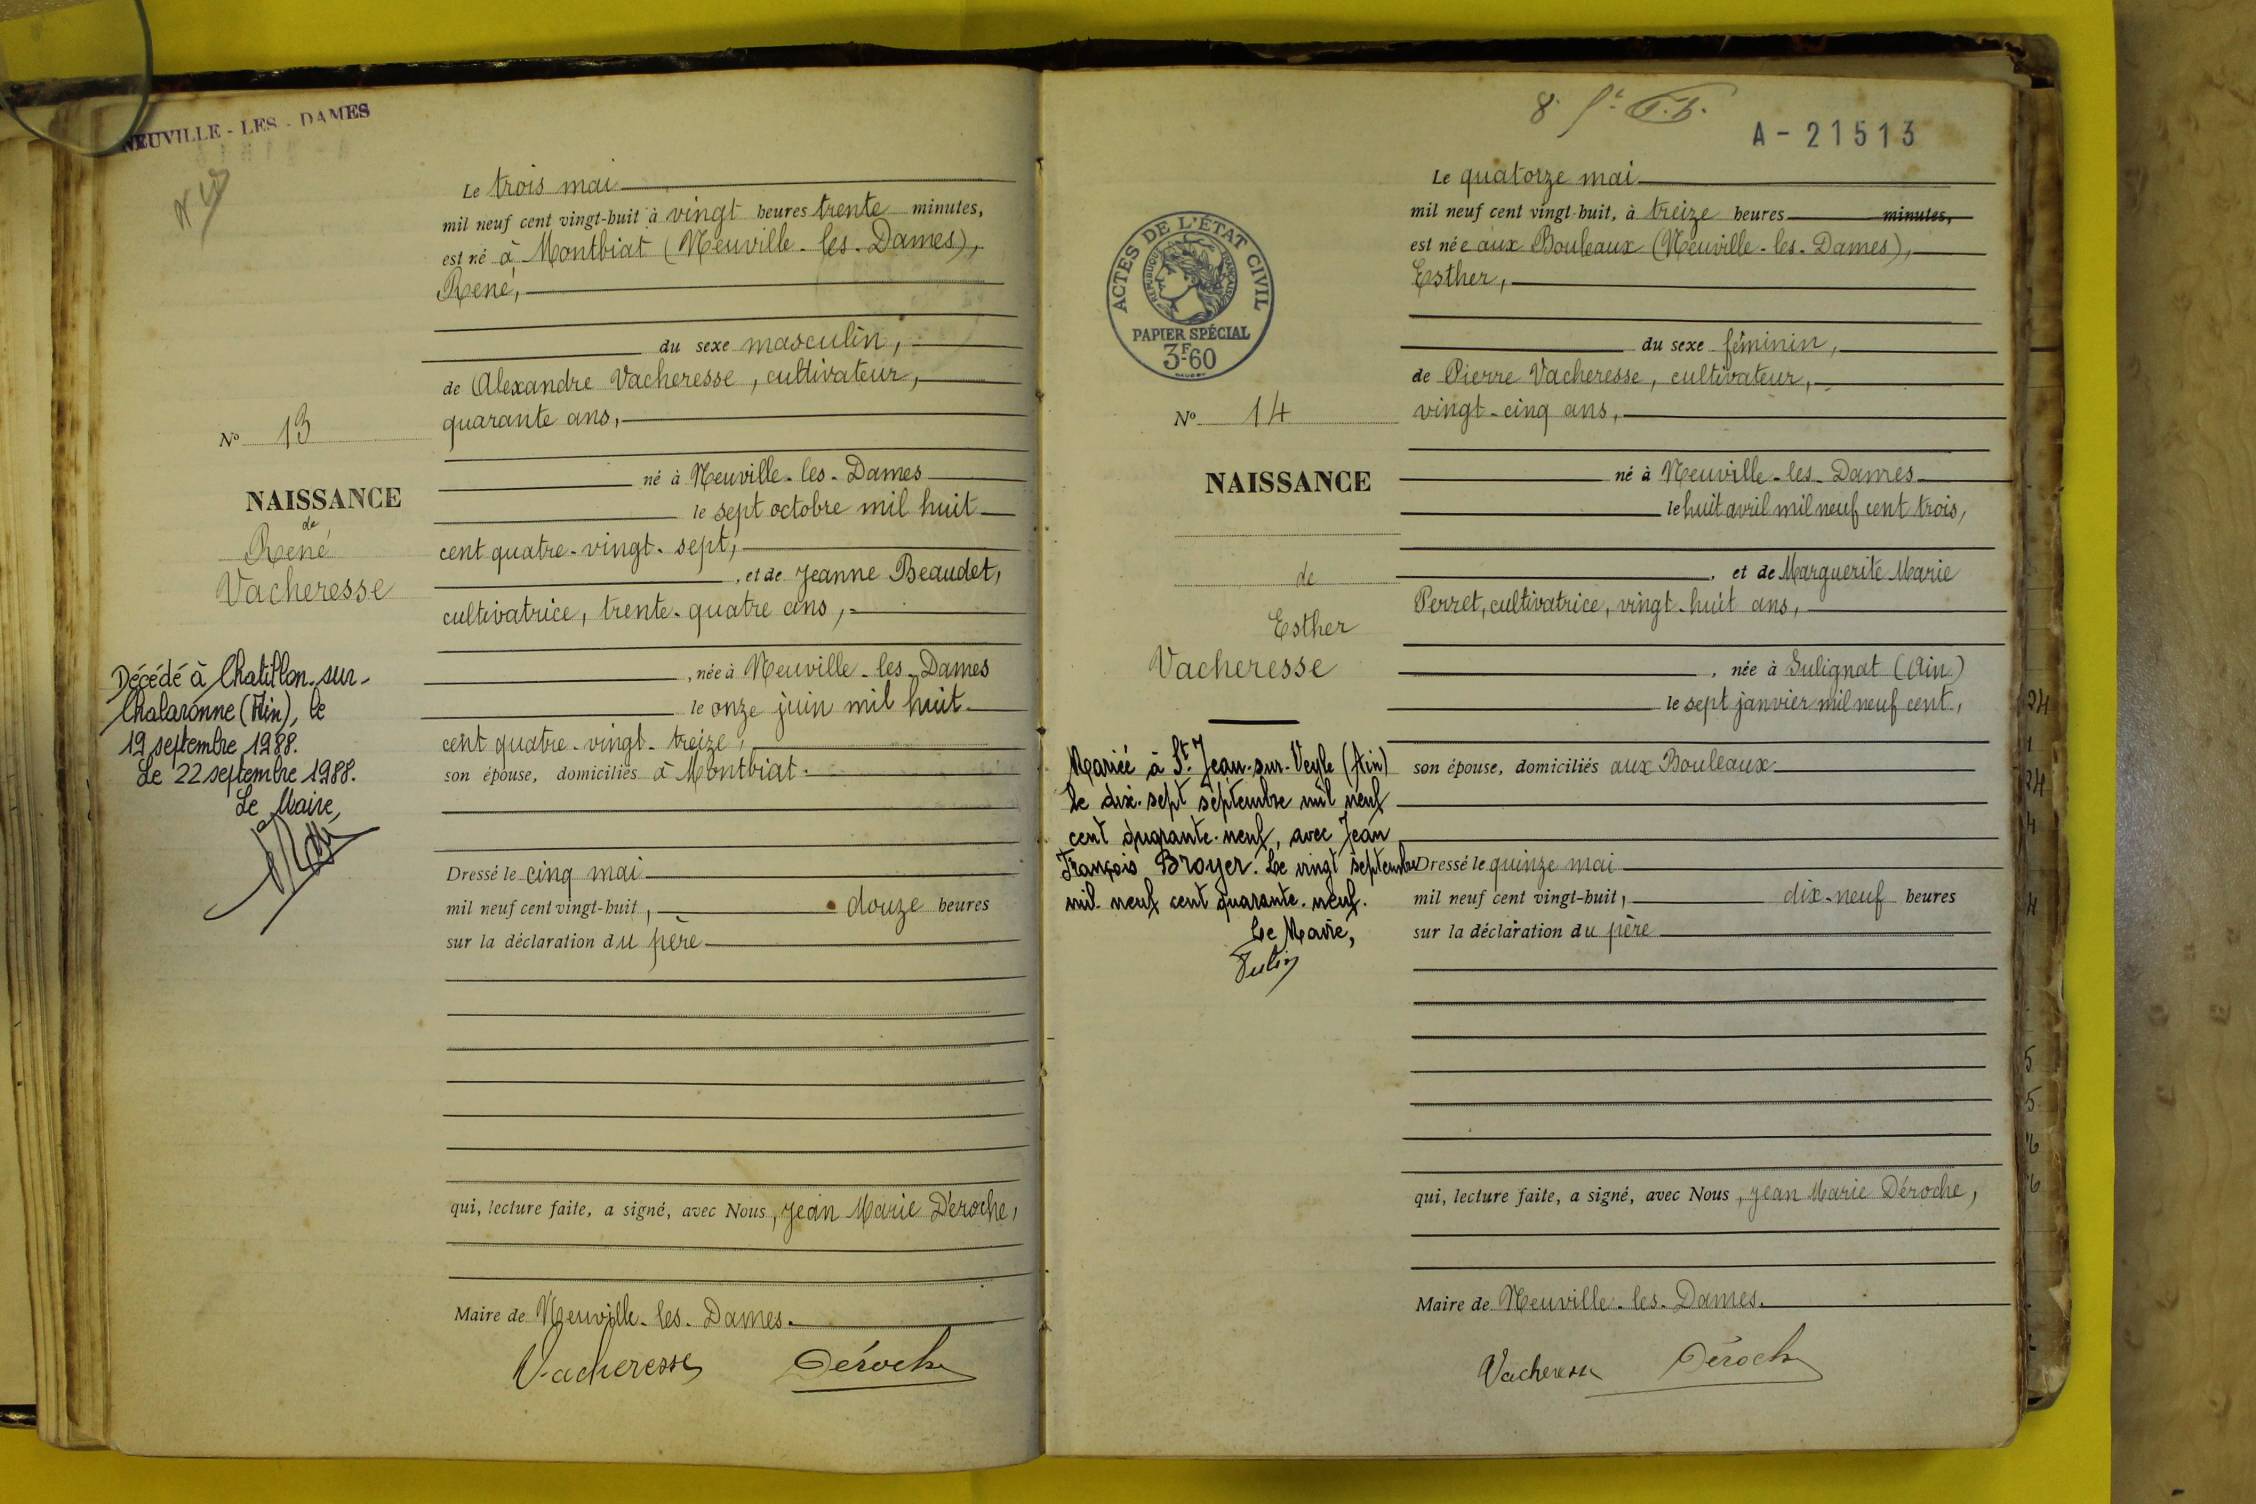 NEUVILLE - LES - DAMES
Le trois mai
mil neuf cent vingt-huit à vingt heures trente minutes,
est né à Montbiat (Neuville-les-Dames),
René,
du sexe masculin,
de Alexandre Vacheresse, cultivateur,
quarante ans,
né à Neuville-les-Dames
le sept octobre mil huit
cent quatre-vingt-sept,
, et de Jeanne Beaudet,
cultivatrice, trente-quatre ans,
, née à Neuville-les-Dames
le onze juin mil huit
cent quatre-vingt-treize,
son épouse, domiciliés à Montbiat.
Dressé le cinq mai
mil neuf cent vingt-huit, douze heures
sur la déclaration du père
qui, lecture faite, a signé, avec Nous, Jean Marie Déroche,
Maire de Neuville-les-Dames.
Vacheresse Déroche
No 13
NAISSANCE
de
René
Vacheresse
Décédé à Chatillon-sur-
Chalaronne (Ain), le
19 septembre 1988.
Le 22 septembre 1988.
Le Maire,
8.
A-21513
ACTES DE L'ÉTAT CIVIL
RÉPUBLIQUE FRANÇAISE
PAPIER SPÉCIAL
3F60
Le quatorze mai
mil neuf cent vingt-huit, à treize heures minutes,
est née aux Bouleaux (Neuville-les-Dames),
Esther,
du sexe féminin,
de Pierre Vacheresse, cultivateur,
vingt-cinq ans,
né à Neuville-les-Dames
le huit avril mil neuf cent trois,
, et de Marguerite Marie
Perret, cultivatrice, vingt-huit ans,
, née à Sulignat (Ain)
le sept janvier mil neuf cent,
son épouse, domiciliés aux Bouleaux
Dressé le quinze mai
mil neuf cent vingt-huit, dix-neuf heures
sur la déclaration du père
qui, lecture faite, a signé, avec Nous, Jean Marie Déroche,
Maire de Neuville-les-Dames.
Vacheresse Déroche
No 14
NAISSANCE
de
Esther
Vacheresse
Mariée à St. Jean-sur-Veyle (Ain)
le dix-sept septembre mil neuf
cent quarante-neuf, avec Jean
François Broyer. Le vingt septembre
mil neuf cent quarante-neuf.
Le Maire,
24
1
24
4
4
5
5
6
6